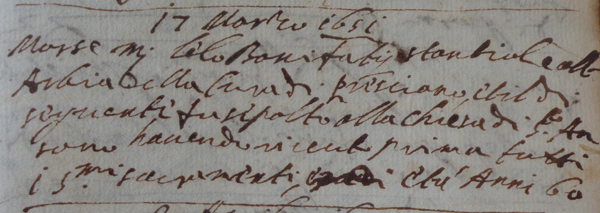 17 Marzo 1651
Morse m. Lelo Bonifatij stantiole all
Arbia della Cura di Presciano et il dì
seguenti fu sepolto alla chiesa di S. An
sano havendo riceuto prima tutti
i S.mi sacramenti, età Anni 60